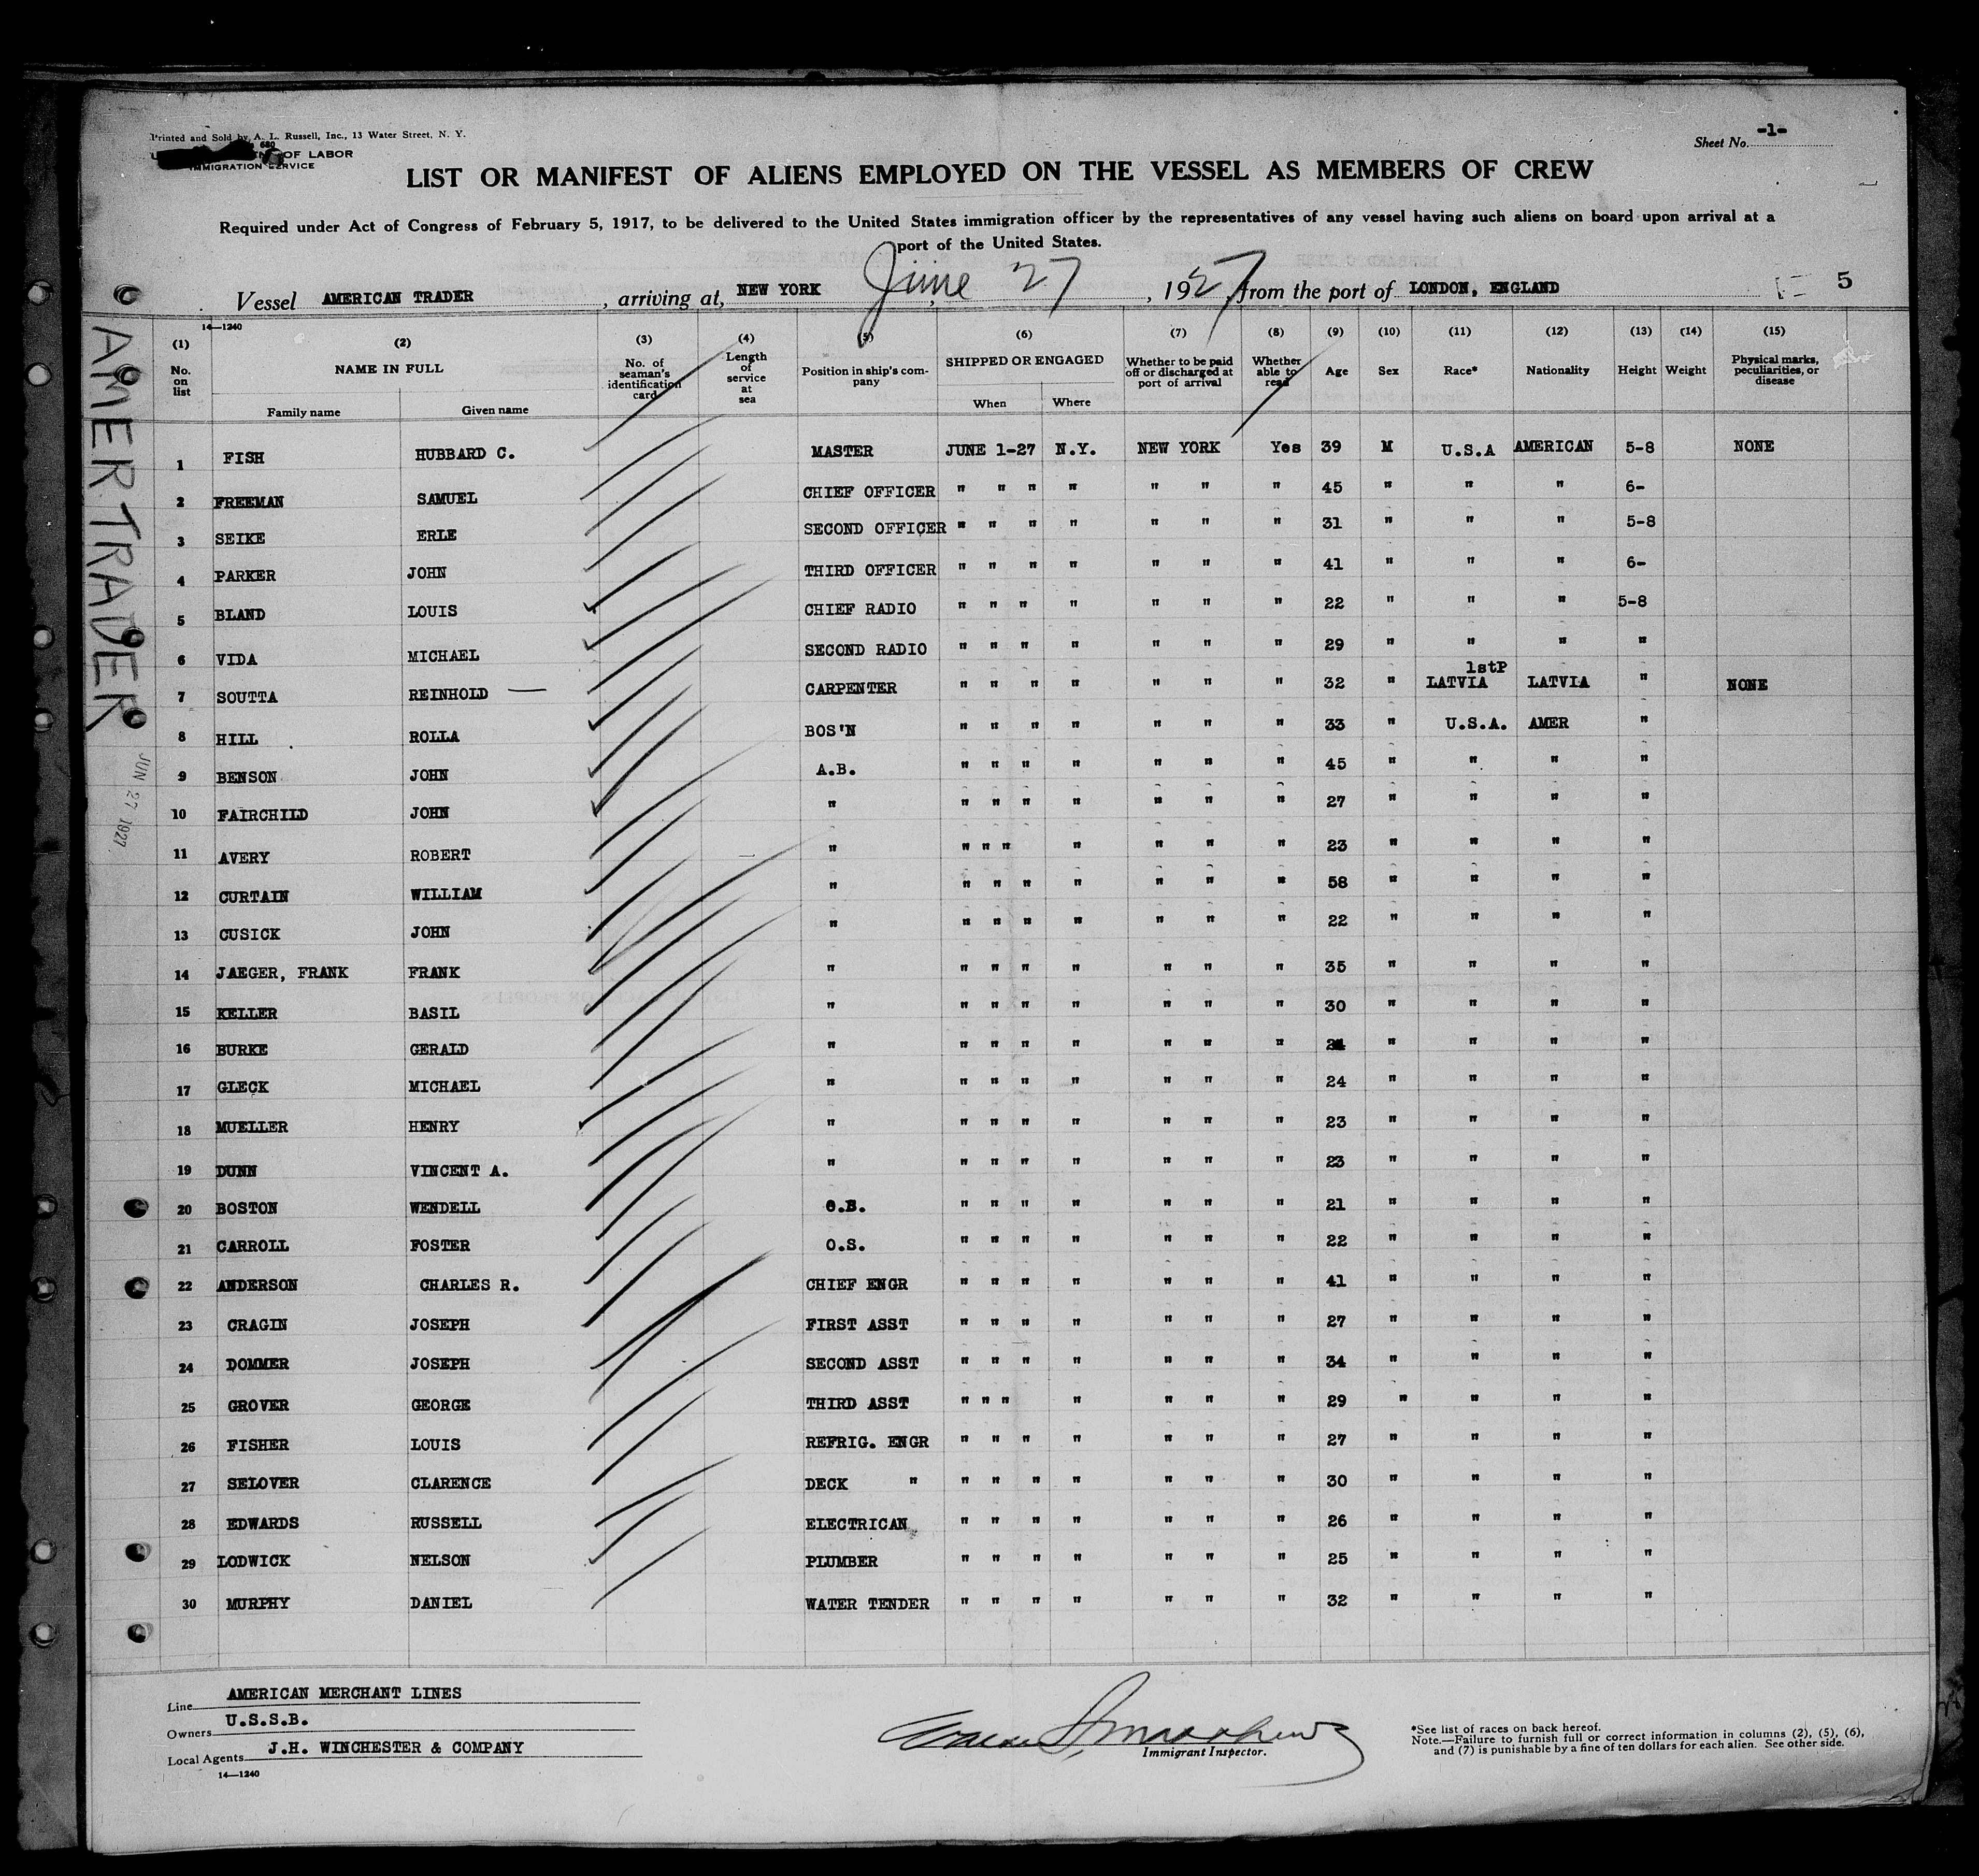 Printed and Sold by A. L. Russell, Inc., 13 Water Street, N. Y.
680
OF LABOR
IMMIGRATION SERVICE
Sheet No. -1-
LIST OR MANIFEST OF ALIENS EMPLOYED ON THE VESSEL AS MEMBERS OF CREW
Required under Act of Congress of February 5, 1917, to be delivered to the United States immigration officer by the representatives of any vessel having such aliens on board upon arrival at a
port of the United States.
Vessel AMERICAN TRADER, arriving at, NEW YORK June 27, 1927, from the port of LONDON, ENGLAND 5
14—1240
(1) No. on list (2) NAME IN FULL Family name Given name (3) No. of seaman's identification card (4) Length of service at sea (5) Position in ship's company (6) SHIPPED OR ENGAGED When Where (7) Whether to be paid off or discharged at port of arrival (8) Whether able to read (9) Age (10) Sex (11) Race* (12) Nationality (13) Height (14) Weight (15) Physical marks, peculiarities, or disease
1 FISH HUBBARD C. MASTER JUNE 1-27 N.Y. NEW YORK Yes 39 M U.S.A AMERICAN 5-8 NONE
2 FREEMAN SAMUEL CHIEF OFFICER " " " " " " " 45 " " " 6-
3 SEIKE ERLE SECOND OFFICER " " " " " " " 31 " " " 5-8
4 PARKER JOHN THIRD OFFICER " " " " " " " 41 " " " 6-
5 BLAND LOUIS CHIEF RADIO " " " " " " " 22 " " " 5-8
6 VIDA MICHAEL SECOND RADIO " " " " " " " 29 " " " "
7 SOUTTA REINHOLD — CARPENTER " " " " " " " 32 " 1stP LATVIA LATVIA " NONE
8 HILL ROLLA BOS'N " " " " " " " 33 " U.S.A. AMER "
9 BENSON JOHN A.B. " " " " " " " 45 " " " "
10 FAIRCHILD JOHN " " " " " " " " 27 " " " "
11 AVERY ROBERT " " " " " " " " 23 " " " "
12 CURTAIN WILLIAM " " " " " " " " 58 " " " "
13 CUSICK JOHN " " " " " " " " 22 " " " "
14 JAEGER, FRANK FRANK " " " " " " " " 35 " " " "
15 KELLER BASIL " " " " " " " " 30 " " " "
16 BURKE GERALD " " " " " " " " " " " "
17 GLECK MICHAEL " " " " " " " " 24 " " " "
18 MUELLER HENRY " " " " " " " " 23 " " " "
19 DUNN VINCENT A. " " " " " " " " 23 " " " "
20 BOSTON WENDELL " " " " " " " 21 " " " "
21 CARROLL FOSTER O.S. " " " " " " " 22 " " " "
22 ANDERSON CHARLES R. CHIEF ENGR " " " " " " " 41 " " " "
23 CRAGIN JOSEPH FIRST ASST " " " " " " " 27 " " " "
24 DOMMER JOSEPH SECOND ASST " " " " " " " 34 " " " "
25 GROVER GEORGE THIRD ASST " " " " " " " 29 " " " "
26 FISHER LOUIS REFRIG. ENGR " " " " " " " 27 " " " "
27 SELOVER CLARENCE DECK " " " " " " " " 30 " " " "
28 EDWARDS RUSSELL ELECTRICAN " " " " " " " 26 " " " "
29 LODWICK NELSON PLUMBER " " " " " " " 25 " " " "
30 MURPHY DANIEL WATER TENDER " " " " " " " 32 " " " "
AMER TRADER
JUN 27 1927
Line AMERICAN MERCHANT LINES
Owners U.S.S.B.
Local Agents J.H. WINCHESTER & COMPANY
14—1240
Immigrant Inspector.
*See list of races on back hereof.
Note.—Failure to furnish full or correct information in columns (2), (5), (6),
and (7) is punishable by a fine of ten dollars for each alien. See other side.